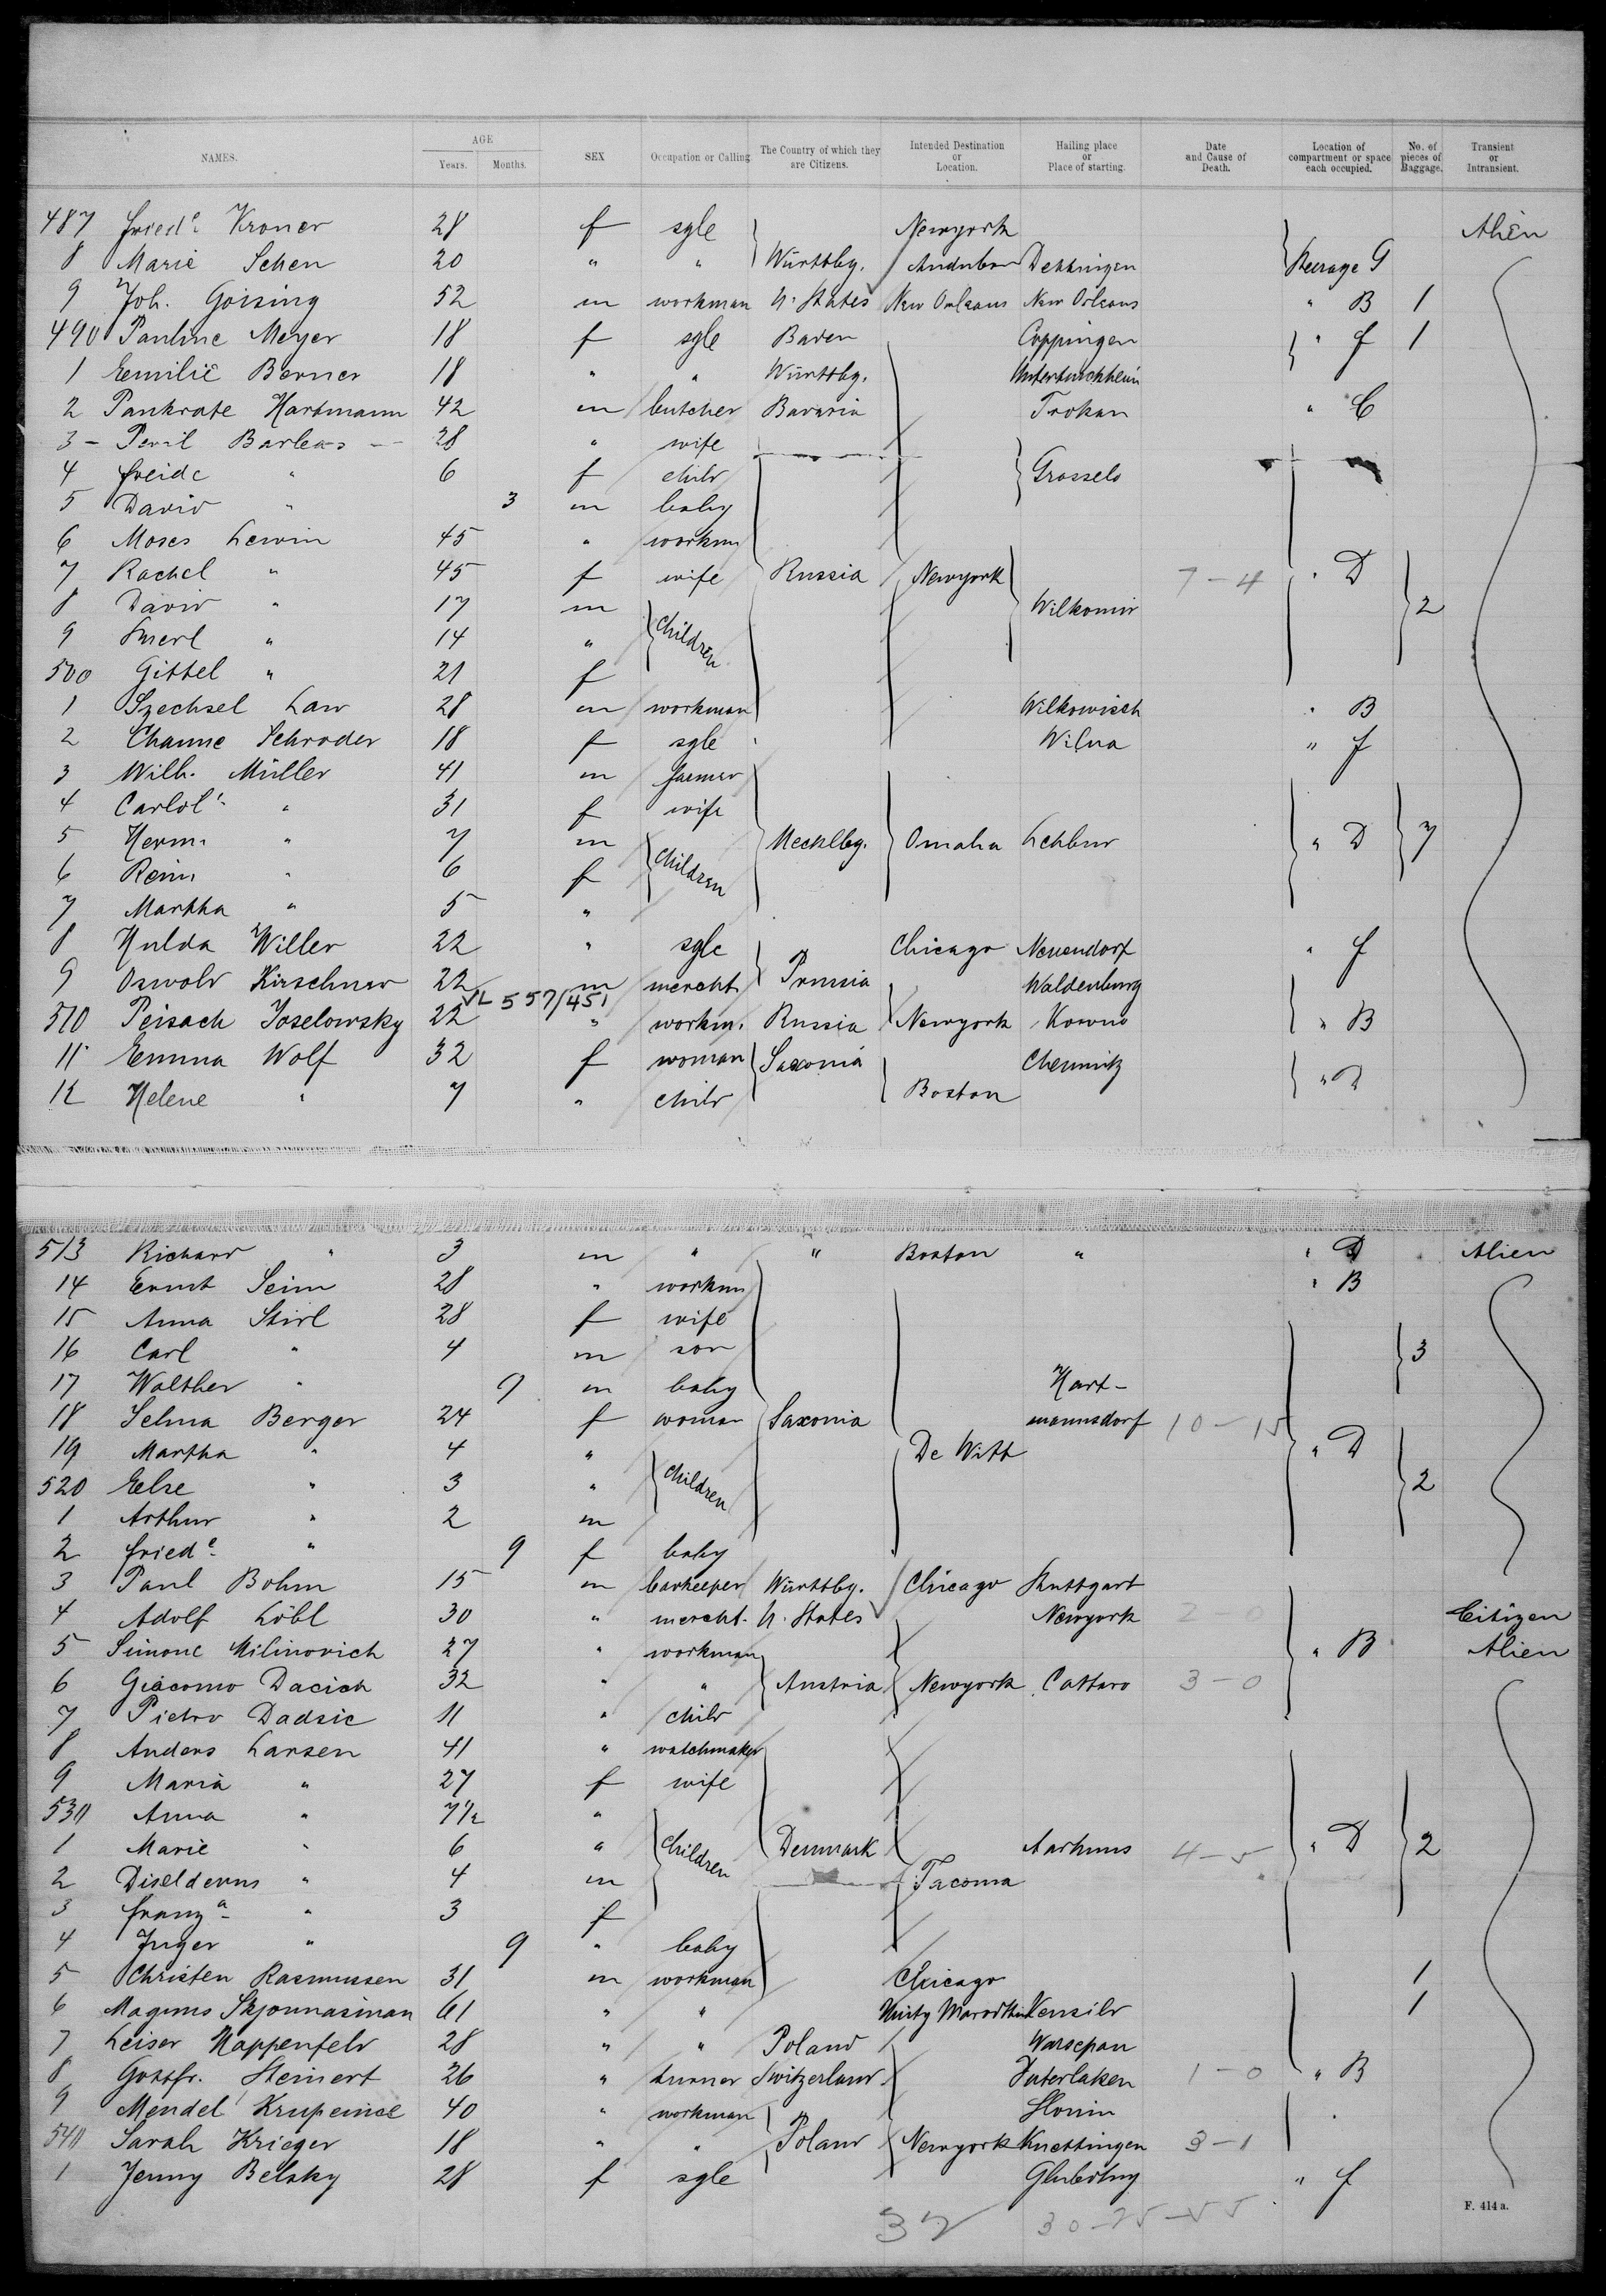 NAMES. AGE Years. Months. SEX Occupation or Calling The Country of which they are Citizens. Intended Destination or Location. Hailing place or Place of starting. Date and Cause of Death. Location of compartment or space each occupied. No. of pieces of Baggage. Transient or Intransient.
487 Fried.e Kroner 28 f sgle Newyork Alien
8 Marie Schen 20 " " Württbg. Dettingen Steerage G
9 Joh. Goising 52 m workman U. States New Orleans New Orleans " B 1
490 Pauline Meyer 18 f sgle Baden " f 1
1 Emilie Berner 18 " " Württbg.
2 Pankrate Hartmann 42 m butcher Bavaria Trokan " C
3 Barleas 28 " wife
4 Freide " 6 f child Grosselo
5 David " 3 m baby
6 Moses Lewin 45 " workm
7 Rachel " 45 f wife Russia Newyork 7-4 " D
8 David " 17 m children Wilkomir 2
9 Smerl " 14 "
500 Gittel " 21 f
1 Szechsel Law 28 m workman Wilkowisch " B
2 Channe Schroder 18 f sgle Wilna " f
3 Wilh. Müller 41 m farmer
4 Carlol. " 31 f wife
5 Herm. " 7 m children Mecklbg. Omaha " D 7
6 " 6 f
7 Martha " 5 "
8 Hulda Willer 22 " sgle Chicago Neuendorf " f
9 Oswold Kirschner 22 m mercht. Prussia Waldenburg
VL 557/451
510 Peisach Joselowsky 22 " workm. Russia Newyork Kowno " B
11 Emma Wolf 32 f woman Saxonia Chemnitz
12 Helene " 7 " child Boston " D
513 Richard " 3 m " " Boston " " D Alien
14 Ernst Seim 28 " workm " B
15 Anna Stirl 28 f wife
16 Carl " 4 m son 3
17 Walther " 9 m baby Hart-
18 Selma Berger 24 f woman Saxonia mannsdorf 10-15
19 Martha " 4 " children De Witt " D
520 Else " 3 " 2
1 Arthur " 2 m
2 Fried.e " 9 f baby
3 Paul Bohm 15 m barkeeper Württbg. Chicago Stuttgart
4 Adolf Löbl 30 " mercht. U. States Newyork 2-0 Citizen
5 Simone Milinovich 27 " workman " B Alien
6 Giacomo Dacich 32 " " Austria Newyork Cattaro 3-0
7 Pietro Dadsic 11 " child
8 Anders Larsen 41 " watchmaker
9 Maria " 27 f wife
530 Anna " 7 1/2 "
1 Marie " 6 " children Denmark Aarhuus 4-5 " D 2
2 Diselderus " 4 m Tacoma
3 Franz.a " 3 f
4 Inger " 9 " baby
5 Christen Rasmussen 31 m workman Chicago 1
6 Magnus 61 " " 1
7 Leiser Happenfeld 28 " " Poland
8 Gottfr. Steinert 26 " turner Switzerland Interlaken 1-0 " B
9 Mendel 40 " workman Slonin
540 Sarah Krieger 18 " " Poland Newyork 3-1
1 Jenny Belsky 28 f sgle " f
37 30-25-55
F. 414 a.